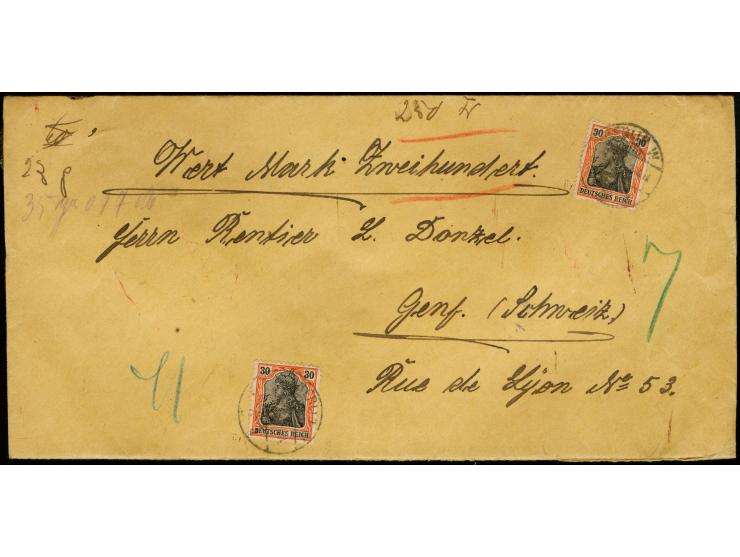 250 Fr
Wert Mark Zweihundert.
Herrn Rentier L. Donzel.
Genf. (Schweiz)
Rue de Lyon No 53.
30 30
DEUTSCHES REICH
30 30
DEUTSCHES REICH